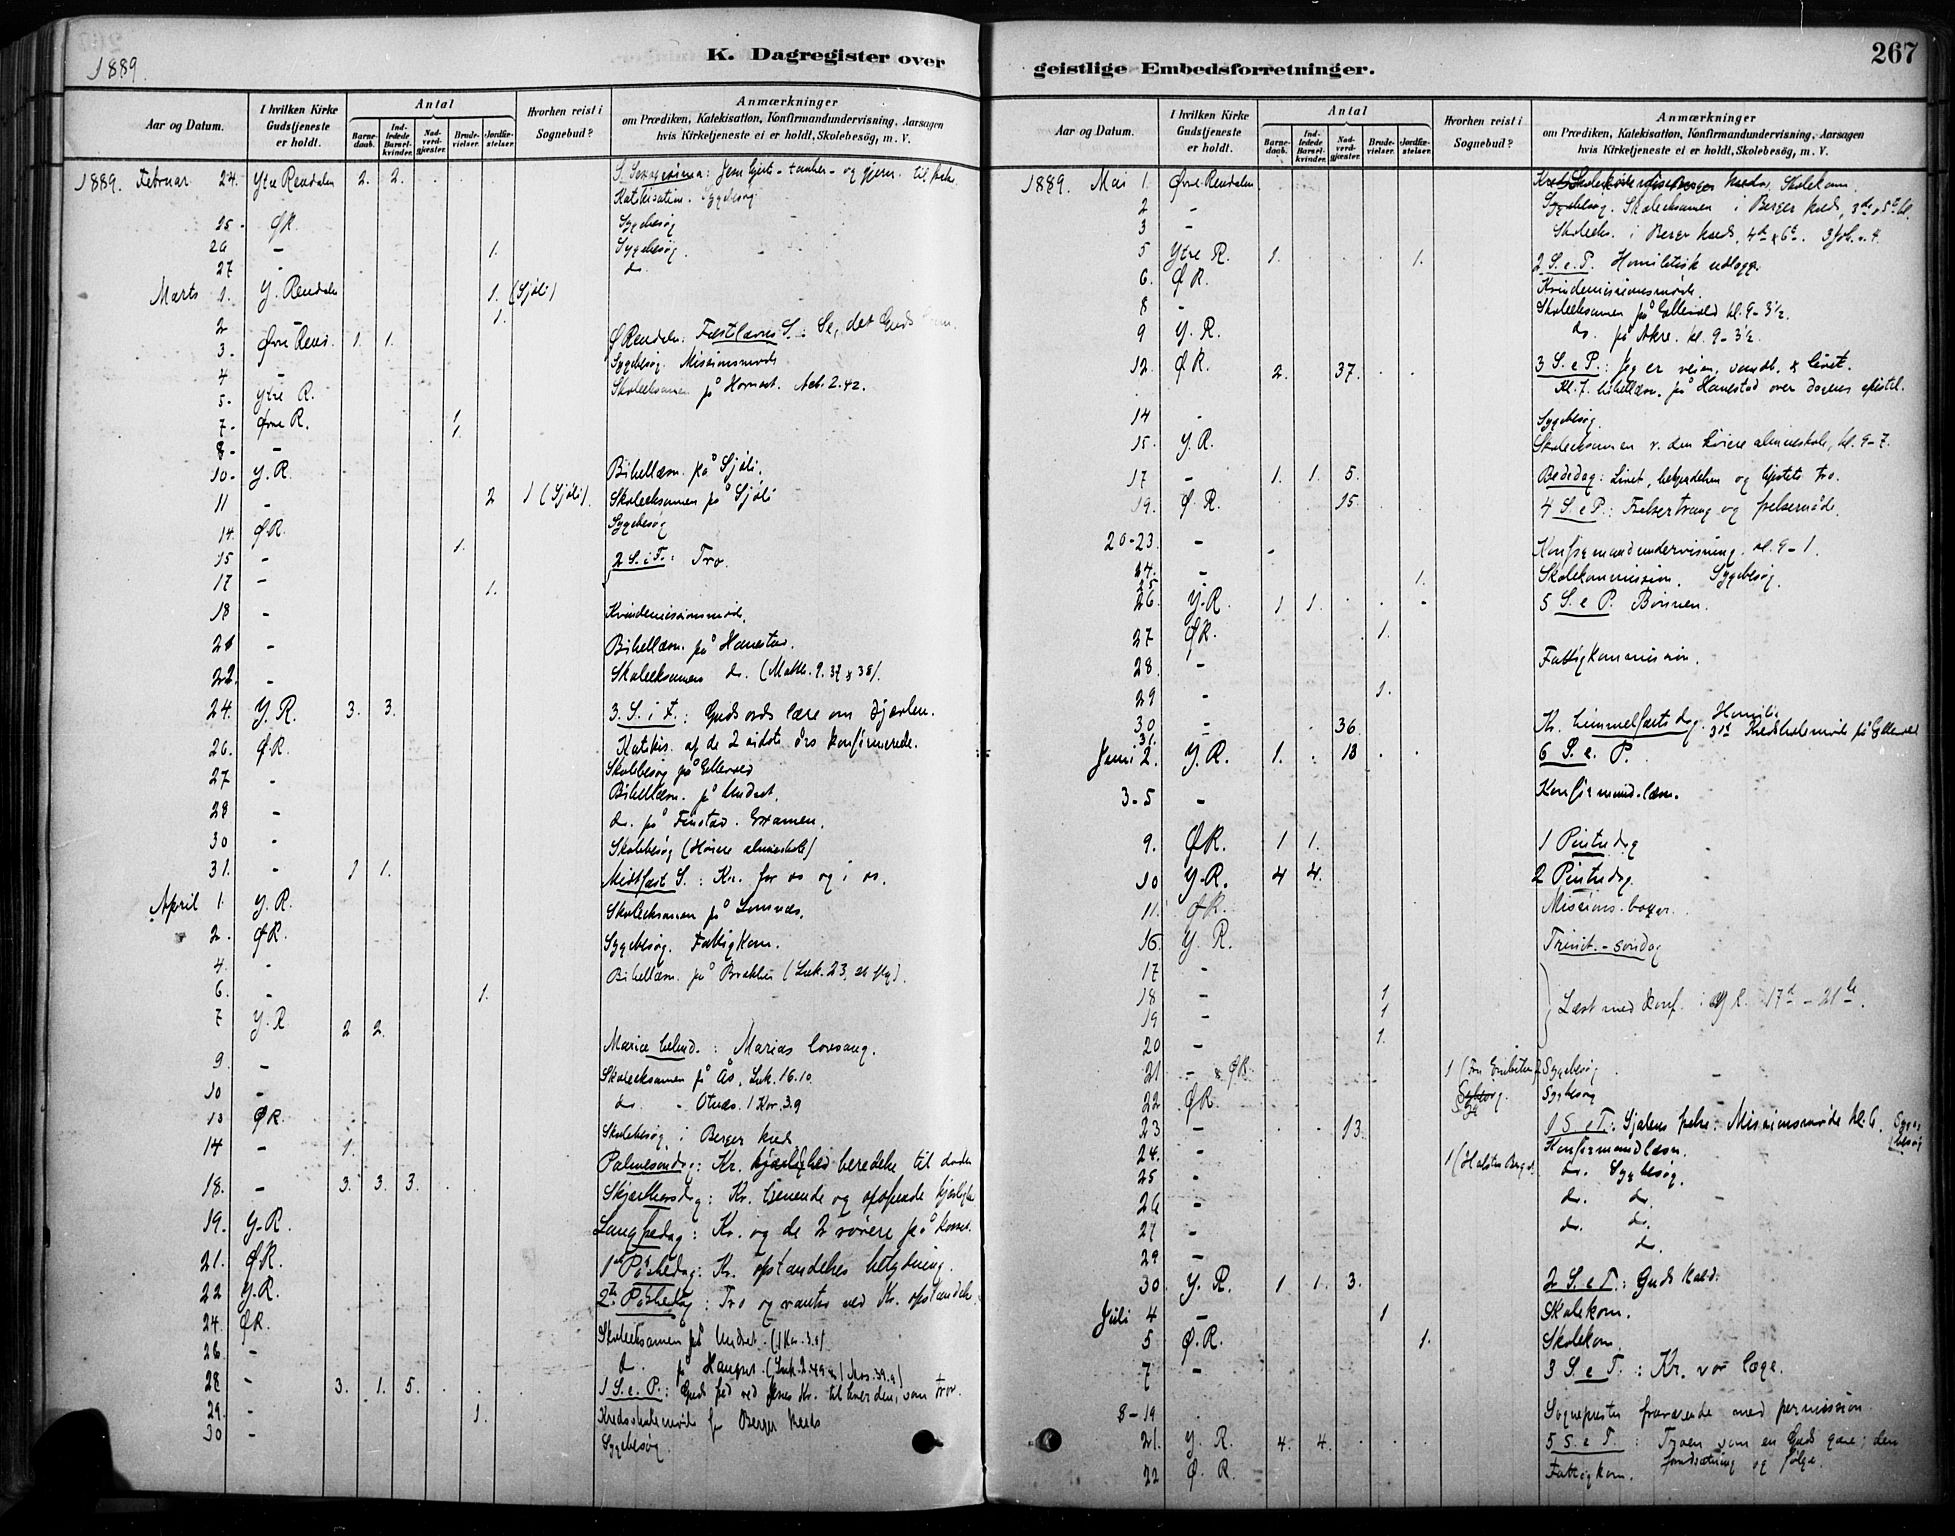 1889.
K. Dagregister over
Aar og Datum.
I hvilken Kirke Gudstjeneste er holdt.
Antal
Barnedaab.
Indledede Barselkvinder.
Nadverdgjæster.
Brudevielser.
Jordfæstelser.
Hvorhen reist i Sognebud?
Anmærkninger
om Prædiken, Katekisation, Konfirmandundervisning, Aarsagen
hvis Kirketjeneste ei er holdt, Skolebesøg, m. V.
1889. Februar 24. Ytre Rendalen 2. 2. S. Sexagesima:
Katekisation. Sygebesøg
25. ØR. Sygebesøg
26 - 1. Sygebesøg.
27. - do.
Marts 1. Y. Rendalen 1. (Sjøli)
2 - 1.
3. Øvre Rend. 1. 1. Fastelavns S.: Se, det Guds lam.
4 - Sygebesøg. Missionsmøde
5. Ytre R. Skoleeksamen på Hornset. Act. 2. 42.
7. Øvre R. 1.
8. - 1.
10. Y. R. Bibellæsn. på Sjøli.
11 - 2 1 (Sjøli). Skoleeksamen på Sjøli
14. ØR. Sygebesøg
15 - 1. 2 S. i F.: Tro.
17 - 1.
18 - Kvindemissionsmøde.
21 - Bibellæsn. på Hanestad.
22. - Skoleeksamen do. (Matth. 9. 37 & 38).
24. Y. R. 3. 3. 3. S. i F.: Guds ords lære om djævlen.
26. ØR. Katekis. af de 2 sidste års konfirmerede.
27 - Skolebesøg på Ellevold
28 - Bibellæsn. på Undset.
30 - do. på Finstad. Examen.
Skolebesøg (Høiere almueskole)
31. - 1 1. Midtfast S.: Kr. for os og i os.
April 1. Y. R. Skoleeksamen på Lomnes.
2. ØR. Sygebesøg. Fattigkom.
4. - Bibellæsn. på (Luk. 23, flg).
6. - 1.
7 Y. R 2 2. Mariæ bebud.: Marias lovsang.
9. - Skoleeksamen på Ås. Luk. 16. 10.
10 - do. - Otnes. 1 Kor. 3. 9
13 ØR. Skolebesøg i Berger kreds
14 - 1. Palmesøndag: Kr. kjærlighed beredelse til døden
18. - 3. 3. 3. Skjærthorsdag: Kr. tjenende og opofrende kjærlighed
19. Y-R. Langfredag: Kr. og de 2 røvere på korset.
21. ØR. 1ste Påskedag: Kr. opstandelses betydning.
22 Y-R. 2den Påskedag: Tro og vantro ved Kr. opstandelse.
24. ØR. Skoleeksamen på Undset. (1 Kor. 3. 9)
26 - do. på Haugset.
28 - 3. 1. 5. 1 S. e. P.: Guds fred ved Jesus Kr. til hver den, som tror.
29. - 1. Kredsskolemøde for Berger kreds
30 - Sygebesøg.
267
geistlige Embedsforretninger.
Aar og Datum.
I hvilken Kirke Gudstjeneste er holdt.
Antal
Barnedaab.
Indledede Barselkvinder.
Nadverdgjæster.
Brudevielser.
Jordfæstelser.
Hvorhen reist i Sognebud?
Anmærkninger
om Prædiken, Katekisation, Konfirmandundervisning, Aarsagen
hvis Kirketjeneste ei er holdt, Skolebesøg, m. V.
1889. Mai 1. Øvre Rendalen kreds. Skolekom.
2 - Sygebesøg. Skoleeksamen i Berger kreds, 3de & 5te kl.
3 - Skoleeks. i Berger kreds, 4de & 6te.
5 Ytre R. 1. 1. 2 S. e. P. Homiletisk udlægg.
6. ØR. Kvindemissionsmøde.
8 - Skoleeksamen på Ellevold kl. 9 - 3½.
9 Y. R. do. på Akre. kl. 9 - 3½.
12. ØR. 2. 37. 3 S. e P.: Jeg er veien, sandh. & livet.
Kl. 7. bibellæsn. på Hanestad over dagens epistel.
14 - Sygebesøg.
15. Y. R. Skoleeksamen v. den høiere almueskole, kl. 9-7.
17 - 1. 1. 5. Bededag: Livet, bekjendelsen og hjertets tro.
19. Ø. R. 15. 4 S. e P.: Frelsertrang og frelsernåde.
20-23. - Konfirmandundervisning. kl. 9 - 1.
24. - 1. Skolekommission. Sygebesøg.
25
26. Y-R. 1 1. 5 S. e P. Bønnen.
27 ØR. 1.
28 - Fattigkommission.
29 - 1.
30 - 36. Kr. himmelfartsdag. Homili.
31. 31te Kredsskolemøde på Ellevold
Juni 2. Y. R. 1. 18 6 S. e. P.
3-5 - Konfirmand-læsn.
9. ØR. 1 1. 1 Pintsedag
10 Y-R. 4 4. 2 Pintsedag.
11. ØR. Missions-
16. Y. R. Trinit.-søndag
17 -
18 - 1 Læst med konf. i Y R. 17de - 21de.
19 - 1
20 - 1.
21 - & ØR. 1 Sygebesøg
22 ØR. Sygebesøg
23 - 13. 1 S e T: Sjælens frelse. Missionsmøde kl. 6. Sygebesøg
24. - Konfirmandlæsn.
25 - do. Sygebesøg.
26 - do. do.
27 - do. do.
29 - do.
30. Y. R. 1 1. 3. 2 S. e T.: Guds kald.
Juli 4 - 1 Skolekom.
5 Ø. R. 1. Skolekom
7 - 3 S. e T.: Kr. vor læge.
8-19 Sognepresten fraværende med permission.
21. Y. R. 4. 4. 5 S. e T.: Troen som en Guds gave; dens
forudsætning og følge.
22 Ø. R. Fattigkom.